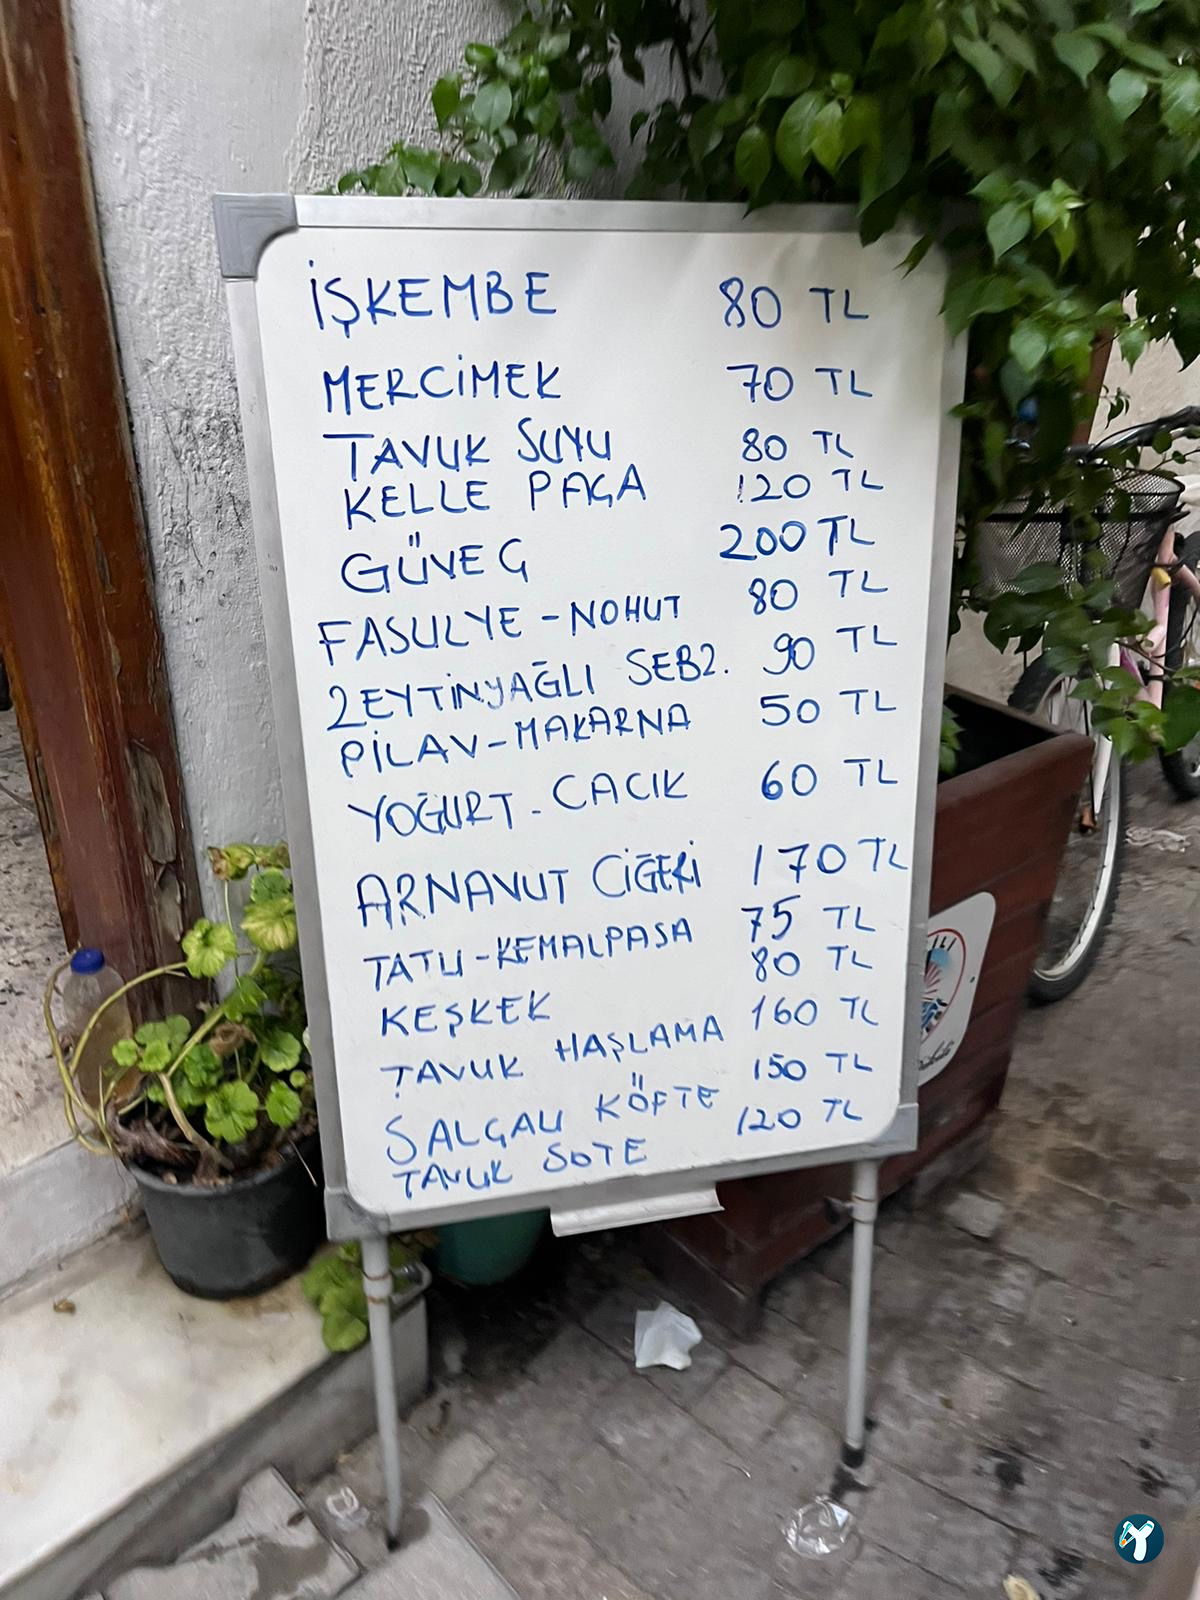 İŞKEMBE 80 TL
MERCİMEK 70 TL
TAVUK SUYU 80 TL
KELLE PAÇA 120 TL
GÜVEÇ 200 TL
FASULYE - NOHUT 80 TL
ZEYTİNYAĞLI SEBZ. 90 TL
PİLAV - MAKARNA 50 TL
YOĞURT - CACIK 60 TL
ARNAVUT CİĞERİ 170 TL
TATLI - KEMALPASA 75 TL
KEŞKEK 80 TL
TAVUK HAŞLAMA 160 TL
SALÇALI KÖFTE 150 TL
TAVUK SOTE 120 TL